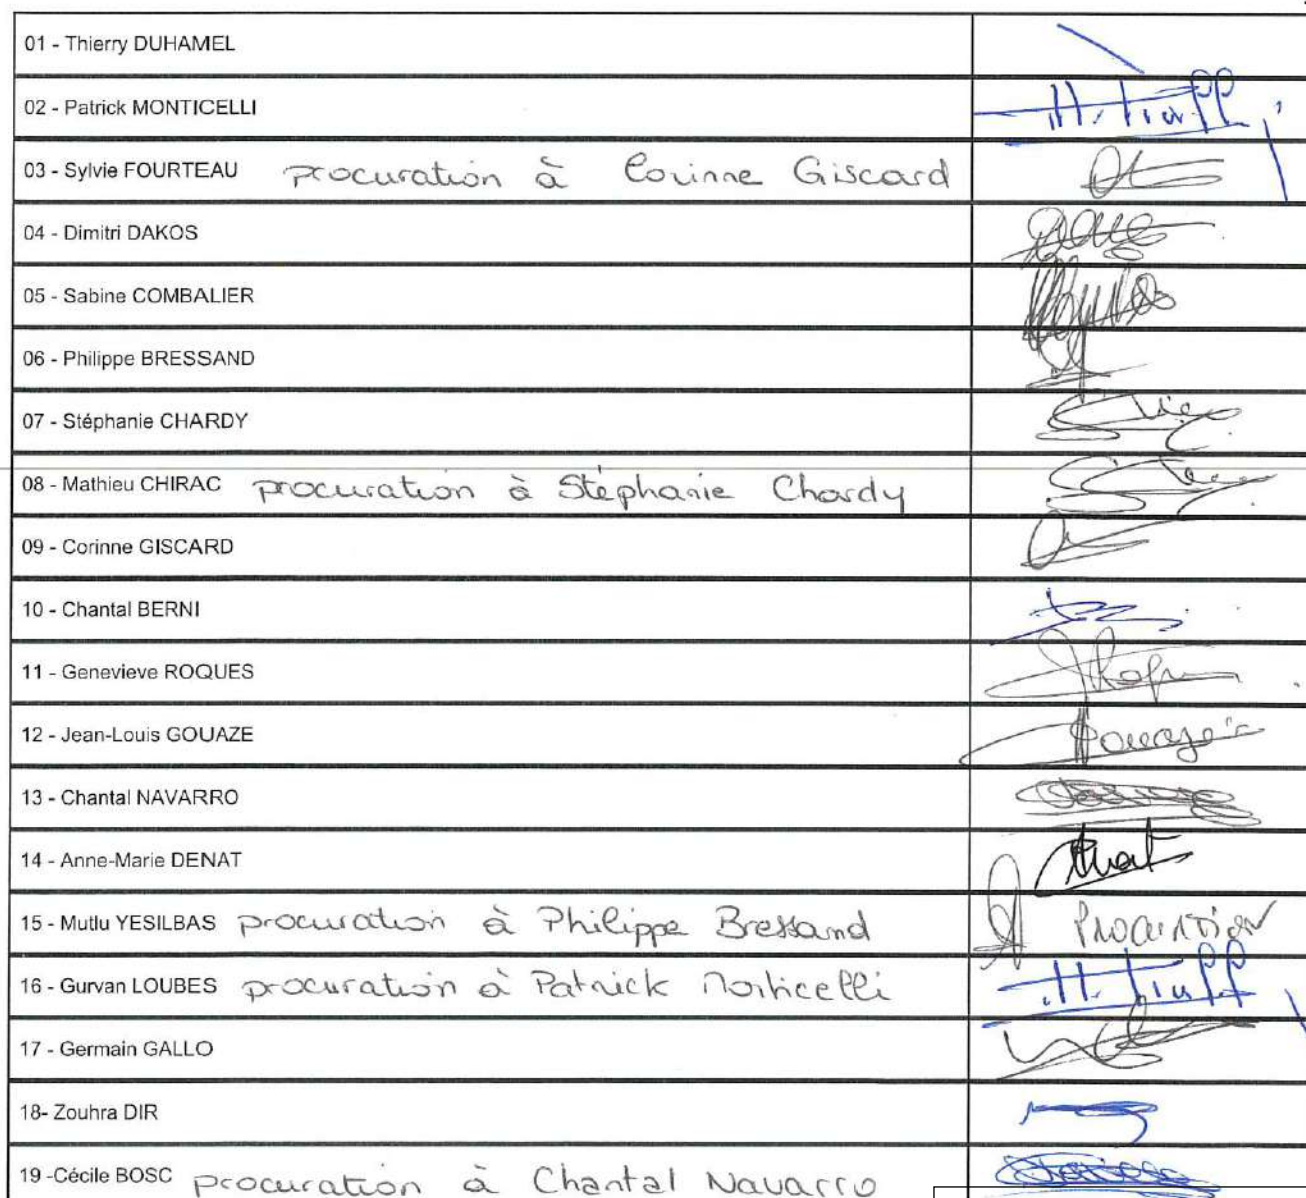 01 - Thierry DUHAMEL
02 - Patrick MONTICELLI
03 - Sylvie FOURTEAU procuration à Corinne Giscard
04 - Dimitri DAKOS
05 - Sabine COMBALIER
06 - Philippe BRESSAND
07 - Stéphanie CHARDY
08 - Mathieu CHIRAC procuration à Stéphanie Chardy
09 - Corinne GISCARD
10 - Chantal BERNI
11 - Genevieve ROQUES
12 - Jean-Louis GOUAZE
13 - Chantal NAVARRO
14 - Anne-Marie DENAT
15 - Mutlu YESILBAS procuration à Philippe Bressand Procuration
16 - Gurvan LOUBES procuration à Patrick Monticelli
17 - Germain GALLO
18- Zouhra DIR
19 -Cécile BOSC procuration à Chantal Navarro